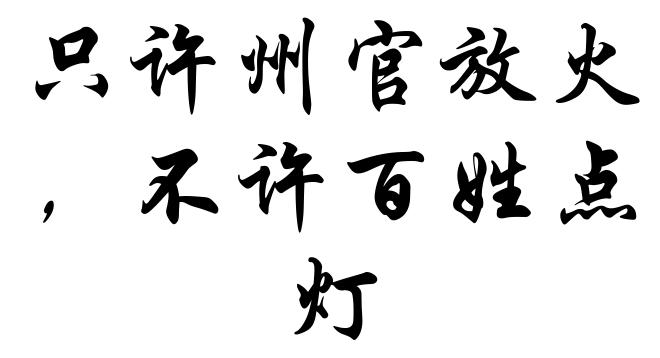 只许州官放火
，不许百姓点
灯